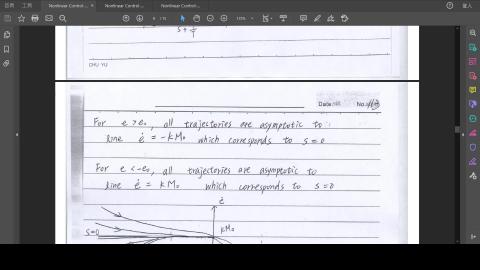 Nonlinear Control ...
Nonlinear Control ...
Nonlinear Control ...
S + 1/T
CHU YU
Date:
No.
For e > e₀, all trajectories are asymptotic to
line ė = -KM₀ which corresponds to s=0
For e < -e₀, all trajectories are asymptotic to
line ė = KM₀ which corresponds to s=0
ė
S=0
KM₀